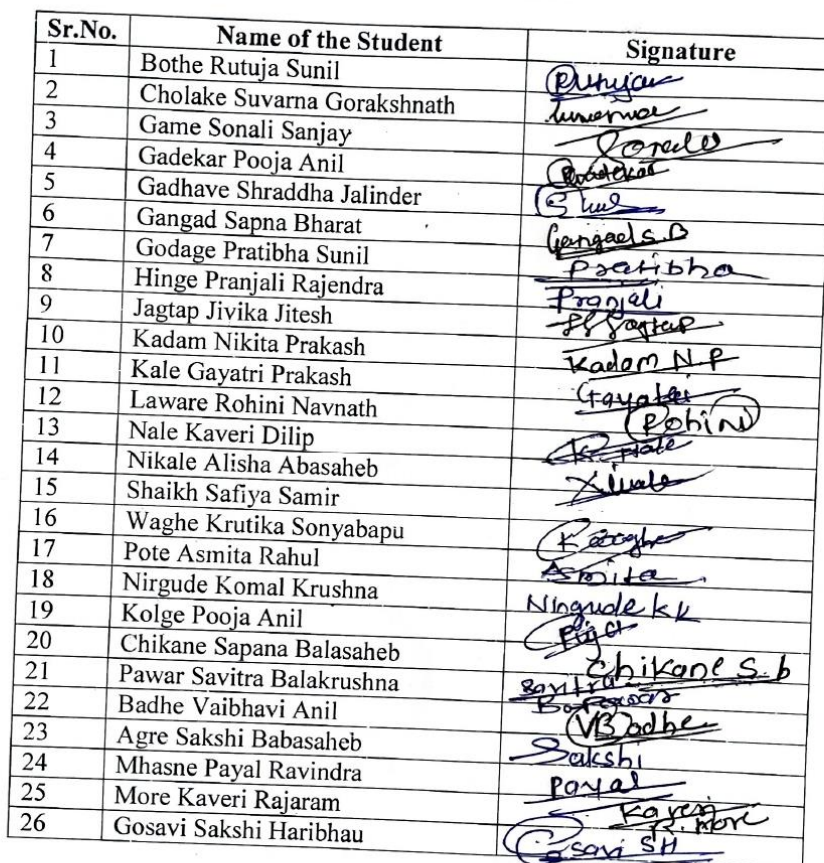 Sr.No. Name of the Student Signature
1 Bothe Rutuja Sunil Rutuja
2 Cholake Suvarna Gorakshnath
3 Game Sonali Sanjay
4 Gadekar Pooja Anil
5 Gadhave Shraddha Jalinder
6 Gangad Sapna Bharat Gangad S.B
7 Godage Pratibha Sunil Pratibha
8 Hinge Pranjali Rajendra Pranjali
9 Jagtap Jivika Jitesh
10 Kadam Nikita Prakash Kadam N.P
11 Kale Gayatri Prakash Gayatri
12 Laware Rohini Navnath Rohini
13 Nale Kaveri Dilip
14 Nikale Alisha Abasaheb
15 Shaikh Safiya Samir
16 Waghe Krutika Sonyabapu
17 Pote Asmita Rahul Asmita
18 Nirgude Komal Krushna Nirgude KK
19 Kolge Pooja Anil
20 Chikane Sapana Balasaheb Chikane S.b
21 Pawar Savitra Balakrushna Savitra
22 Badhe Vaibhavi Anil VBadhe
23 Agre Sakshi Babasaheb Sakshi
24 Mhasne Payal Ravindra Payal
25 More Kaveri Rajaram Kaveri R. More
26 Gosavi Sakshi Haribhau Gosavi SH